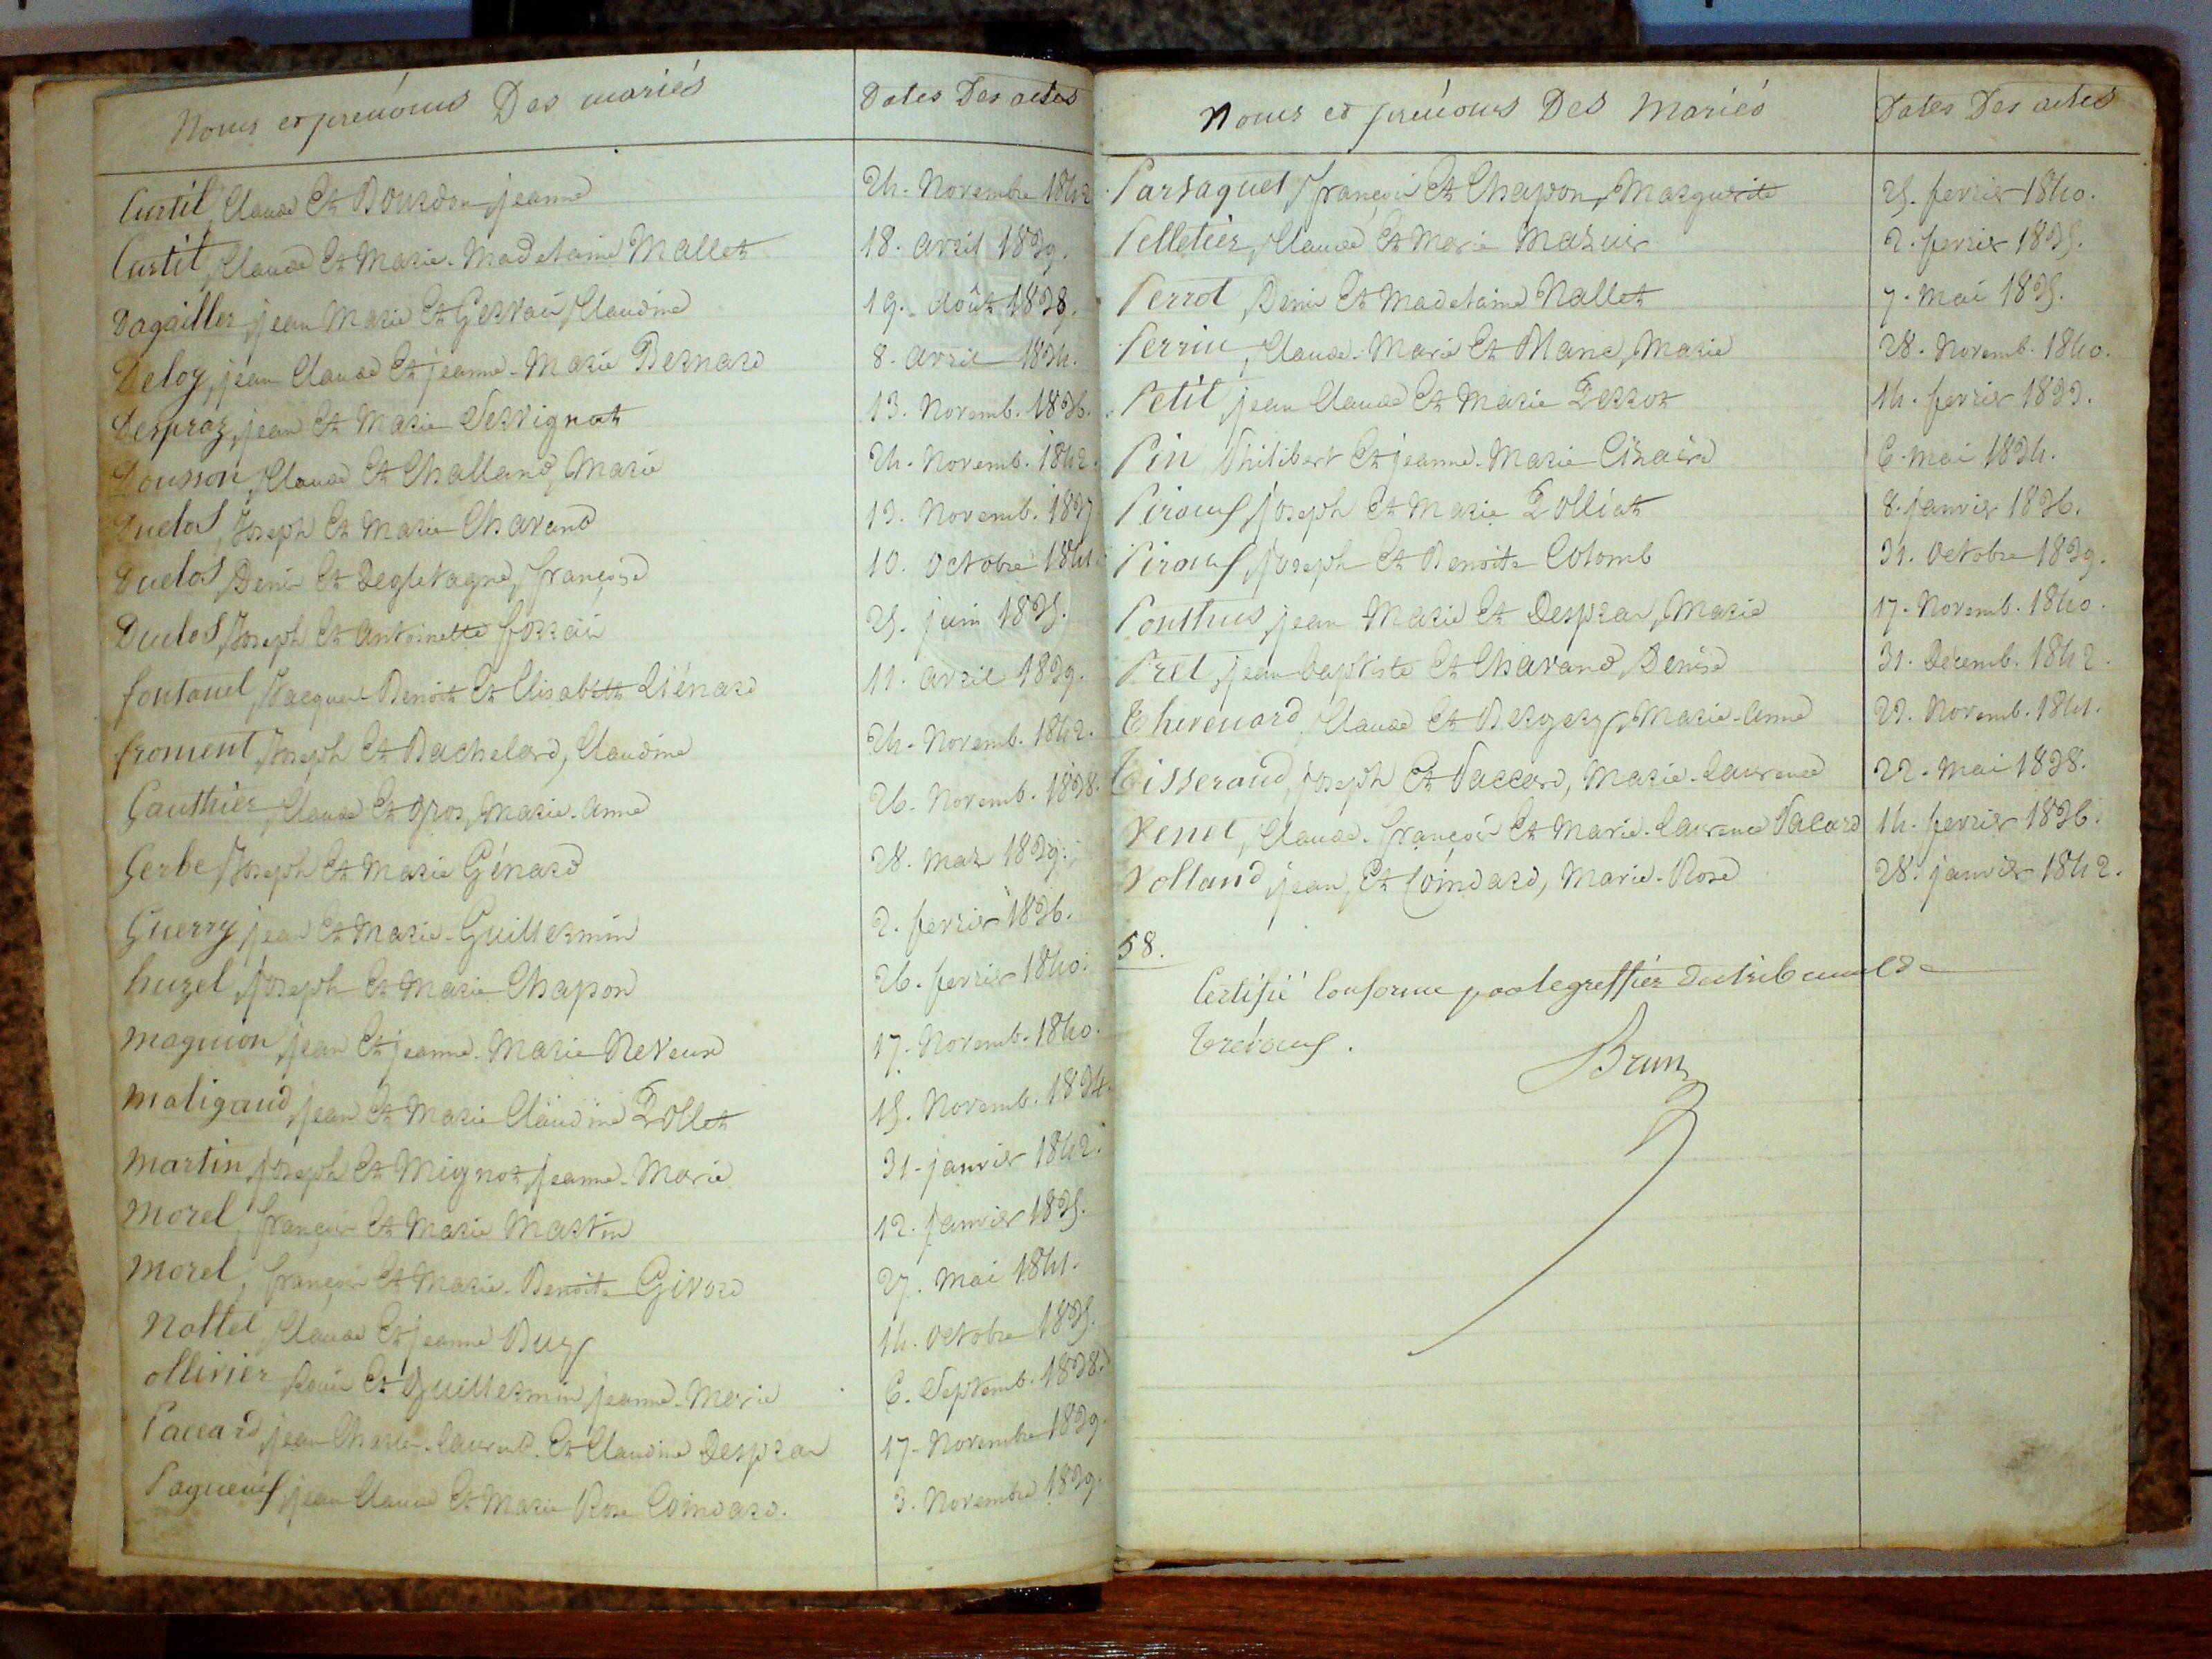 Noms et prénoms Des mariés
Dates Des actes
Curtil, Claude Et Bourdon, jeanne
24. Novembre 1842
Curtil, Claude Et Marie-Madelaine Mallet
18. avril 1839.
Dagailler, jean Marie Et Gervais, Claudine
19. Août 1838.
Deloy, jean Claude Et jeanne-Marie Bernard
8. avril 1834.
Despraz, jean Et Marie Servignat
13. Novemb. 1836.
Dousson, Claude Et Challand, Marie
24. Novemb. 1842.
Duclos, Joseph Et Marie Chavand
13. Novemb. 1837
Duclos, Denis Et Degletagne, françoise
10. Octobre 1841.
Duclos, Joseph Et Antoinette
25. juin 1835.
fontanel, Jacques Benoit Et Elisabeth Liénard
11. avril 1839.
froment, Joseph Et Bachelard, Claudine
24. Novemb. 1842.
Gauthier, Claude Et Gros, Marie-Anne
26. Novemb. 1838.
Gerbe, Joseph Et Marie Génard
28. Mars 1839.
Guerry, jean Et Marie Guillermin
2. fevrier 1836.
huzel, Joseph Et Marie Chapon
26. fevrier 1840.
Magnion, jean Et jeanne-Marie Neveux
17. Novemb. 1840.
Maligaud, jean Et Marie Claudine Pollet
15. Novemb. 1834.
Martin, Joseph Et Mignot, jeanne-Marie
31. janvier 1842.
Morel, françois Et Marie Martin
12. janvier 1835.
Morel, françois Et Marie-Benoite Givord
27. Mai 1841.
Nottel, Claude Et jeanne Buy
14. Octobre 1835.
ollivier, Louis Et Guillermin, jeanne-Marie
6. Septemb. 1838.
Paccard, jean Charles-Laurent Et Claudine Despras
17. Novembre 1839.
Paqueux, jean Claude Et Marie Rose Coindard.
3. Novembre 1839.
Noms et prénoms Des Mariés
Dates Des actes
Parsaquet, françois Et Chapon, Marguerite
25. fevrier 1840.
Pelletier, Claude Et Marie Mazuir
2. fevrier 1835.
Perrot, Denis Et Madelaine Nallet
7. Mai 1835.
Perrin, Claude-Marie Et Blanc, Marie
28. Novemb. 1840.
Petit, jean Claude Et Marie Perrot
14. fevrier 1833.
Pin, Philibert Et jeanne-Marie
6. Mai 1834.
Piroux, Joseph Et Marie Polliat
8. janvier 1836.
Piroux, Joseph Et Benoite Colomb
31. Octobre 1839.
Ponthus, jean Marie Et Despras, Marie
17. Novemb. 1840.
Prel, jean-baptiste Et Chavand, Denise
31. Décemb. 1842.
Thevenard, Claude Et Bergery, Marie-Anne
22. Novemb. 1841.
Tisserand, Joseph Et Vaccard, Marie-Laurence
22. Mai 1838.
Venet, Claude-françois Et Marie-Laurence Vacard
14. fevrier 1836.
Volland, jean, Et Coindard, Marie-Rose
28. janvier 1842.
58.
Certifié Conforme par le greffier du tribunal de
Trévoux.
Brun